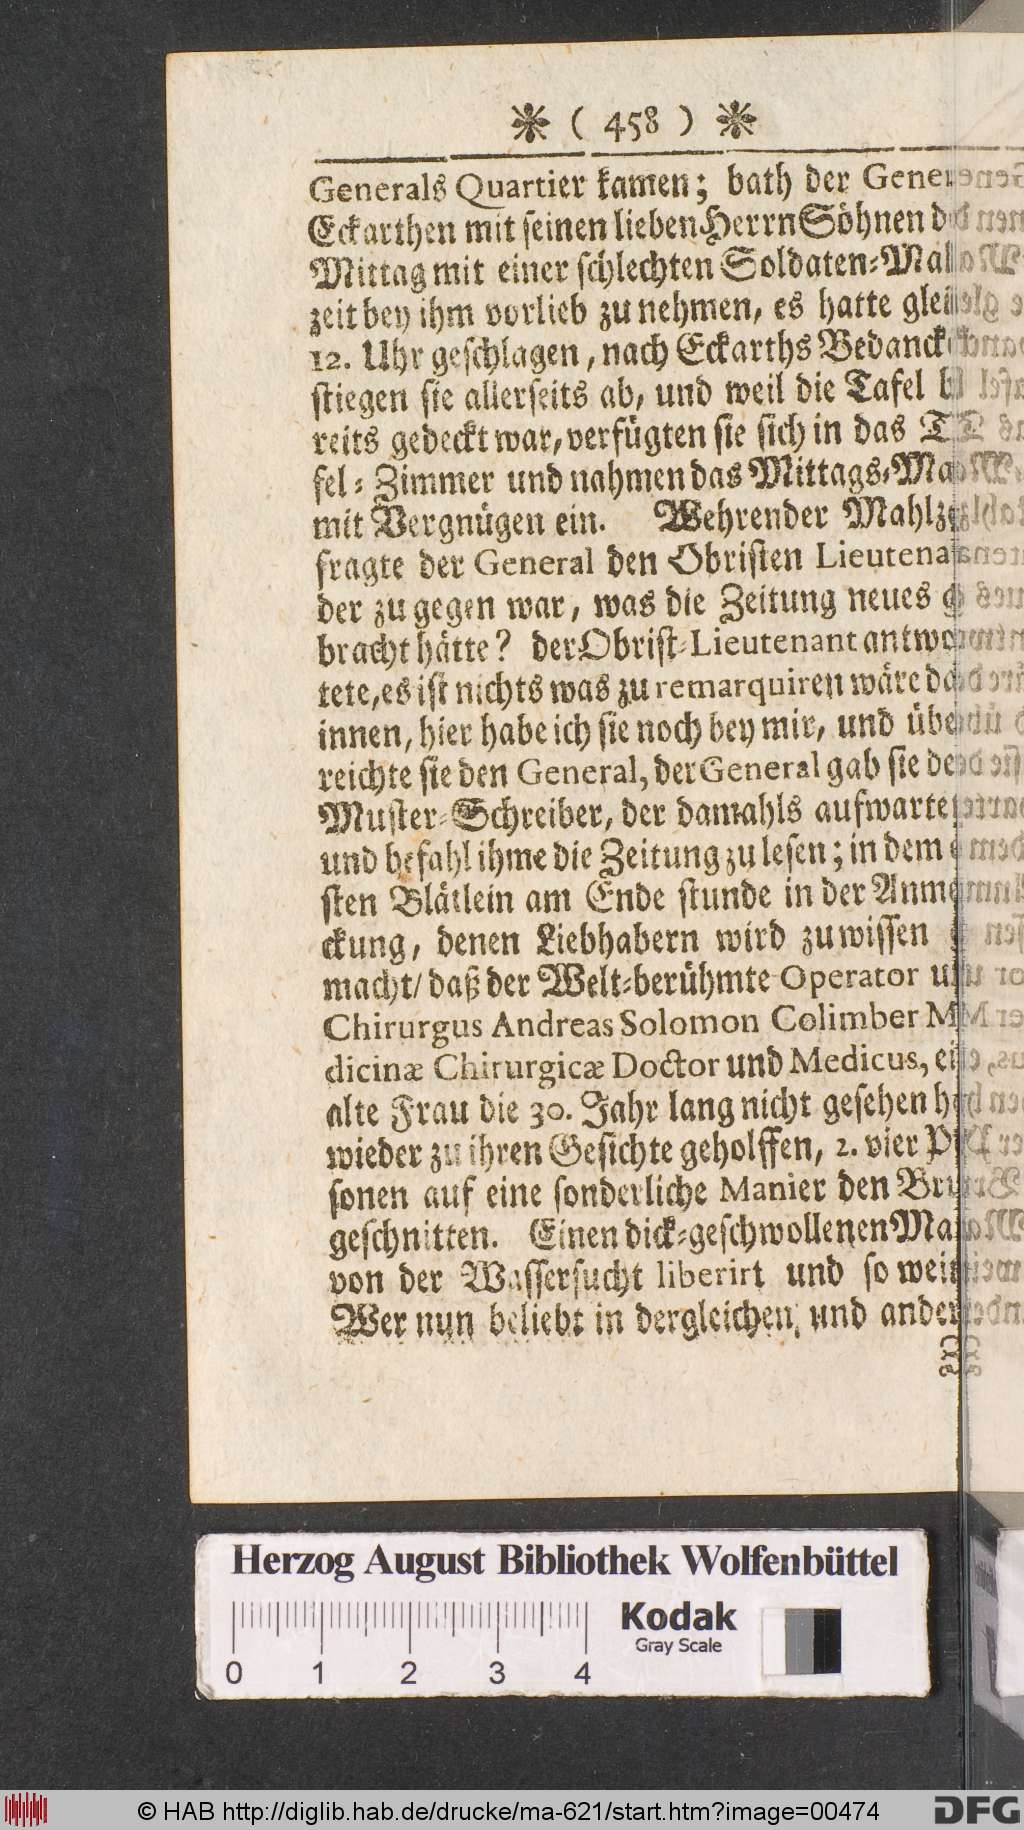 ( 458 )
Generals Quartier kamen; bath der Gener
Eckarthen mit seinen lieben Herrn Söhnen d
Mittag mit einer schlechten Soldaten-Mal
zeit bey ihm vorlieb zu nehmen, es hatte glei
12. Uhr geschlagen, nach Eckarths Bedanck
stiegen sie allerseits ab, und weil die Tafel b
reits gedeckt war, verfügten sie sich in das T
fel-Zimmer und nahmen das Mittags-Ma
mit Vergnügen ein. Wehrender Mahlz
fragte der General den Obristen Lieutena
der zu gegen war, was die Zeitung neues g
bracht hätte? der Obrist-Lieutenant antwo
tete, es ist nichts was zu remarquiren wäre da
innen, hier habe ich sie noch bey mir, und übe
reichte sie den General, der General gab sie de
Muster-Schreiber, der damahls aufwarte
und befahl ihme die Zeitung zu lesen; in dem
sten Blätlein am Ende stunde in der Anme
ckung, denen Liebhabern wird zu wissen g
macht/ daß der Welt-berühmte Operator u
Chirurgus Andreas Solomon Colimber M
dicinæ Chirurgicæ Doctor und Medicus, ei
alte Frau die 30. Jahr lang nicht gesehen h
wieder zu ihren Gesichte geholffen, 2. vier P
sonen auf eine sonderliche Manier den Bru
geschnitten. Einen dick-geschwollenen Ma
von der Wassersucht liberirt und so wei
Wer nun beliebt in dergleichen, und ander
Herzog August Bibliothek Wolfenbüttel
Kodak
Gray Scale
0 1 2 3 4
© HAB http://diglib.hab.de/drucke/ma-621/start.htm?image=00474
DFG